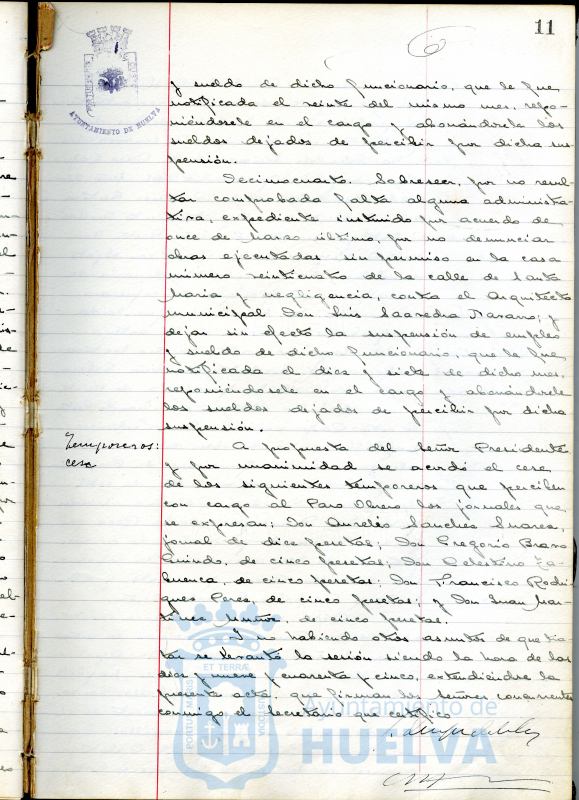 11
6
AYUNTAMIENTO DE HUELVA
y sueldo de dicho funcionario, que le fue
notificada el veinte del mismo mes, repo-
niéndosele en el cargo y abonándosele los
sueldos dejados de percibir por dicha sus-
pensión.
Decimocuarto. Sobreseer, por no resul-
tar comprobada falta alguna administra-
tiva, expediente instruido por acuerdo de
once de Marzo último, por no denunciar
obras ejecutadas sin permiso en la casa
número veinticuatro de la calle de Santa
María y negligencia, contra el Arquitecto
municipal Don Luis Saavedra Navarro; y
dejar sin efecto la suspensión de empleo
y sueldo de dicho funcionario, que le fue
notificada el diez y siete de dicho mes,
reponiéndosele en el cargo y abonándosele
los sueldos dejados de percibir por dicha
suspensión.
Temporeros:
cese
A propuesta del Señor Presidente
y por unanimidad se acordó el cese
de los siguientes temporeros que perciben
con cargo al Paro Obrero los jornales que
se expresan: Don Aurelio Sanchez Suarez,
jornal de diez pesetas; Don Gregorio Bravo
Guindo, de cinco pesetas; Don Celestino
de cinco pesetas; Don Francisco Rodri-
guez Perez, de cinco pesetas; y Don Juan Mar-
tinez Muñoz, de cinco pesetas.
Y no habiendo otros asuntos de que tra-
tar se levantó la sesión siendo la hora de las
diez y nueve y cuarenta y cinco, extendiéndose la
presente acta, que firman los Señores concurrentes
conmigo el Secretario que certifico
ET TERRAE
PORTUS MARIS
CUSTODIA
Ayuntamiento de
HUELVA